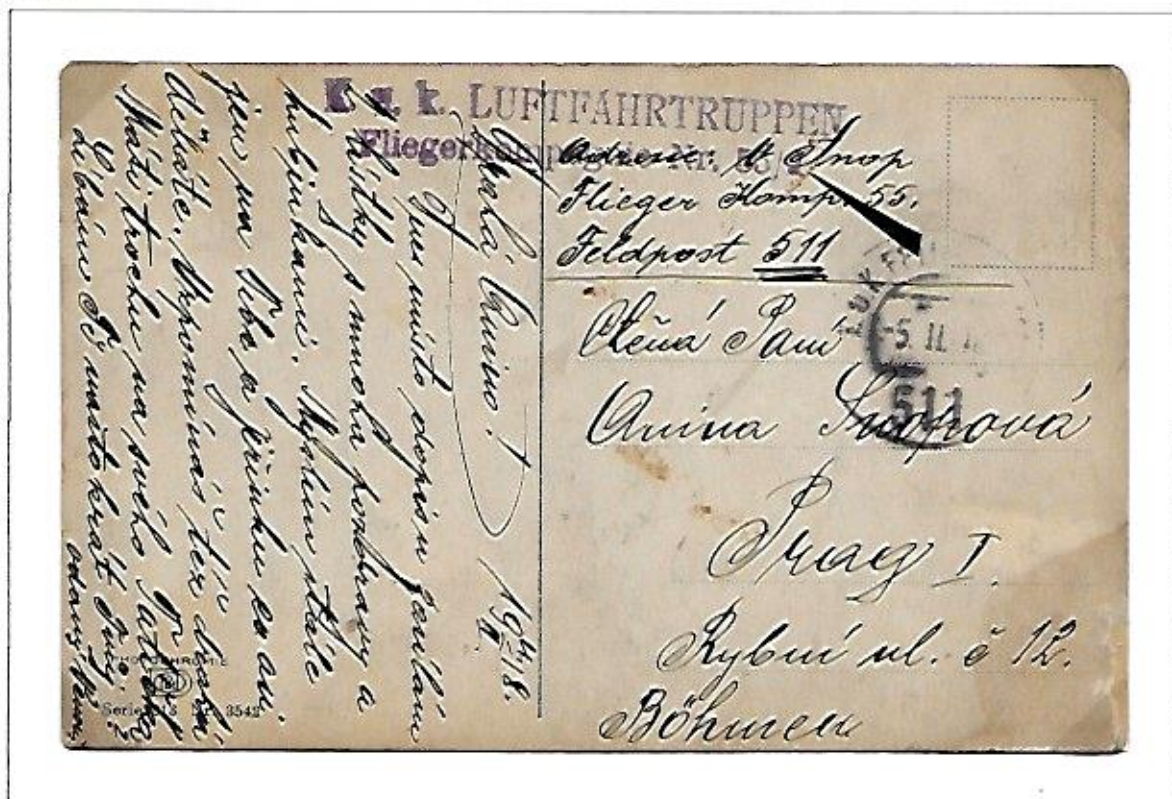 K. u. k. LUFTFAHRTRUPPEN
Fliegerkompagnie Nr. 55/
Adresse: A. Snop
Flieger Komp. 55.
Feldpost 511
K.U.K. FELD
-5. II. 18
511
Ctěná Paní
Anina Snopová
Prag I.
Rybní ul. č 12.
Böhmen
19 4/II 18.
Drahá Anino!
Jen místo dopisu zasílám
lístky s mnoha pozdravy a
hubinkami. Myslím stále
jen na Tebe a Jřinku co as
děláte. Vzpomínáš též drahá
Máti trochu na svého
Líbám Tě mnohokrát Tvůj
oddaný
PHOTOCHROMIE
Serie 213 Nr. 3542